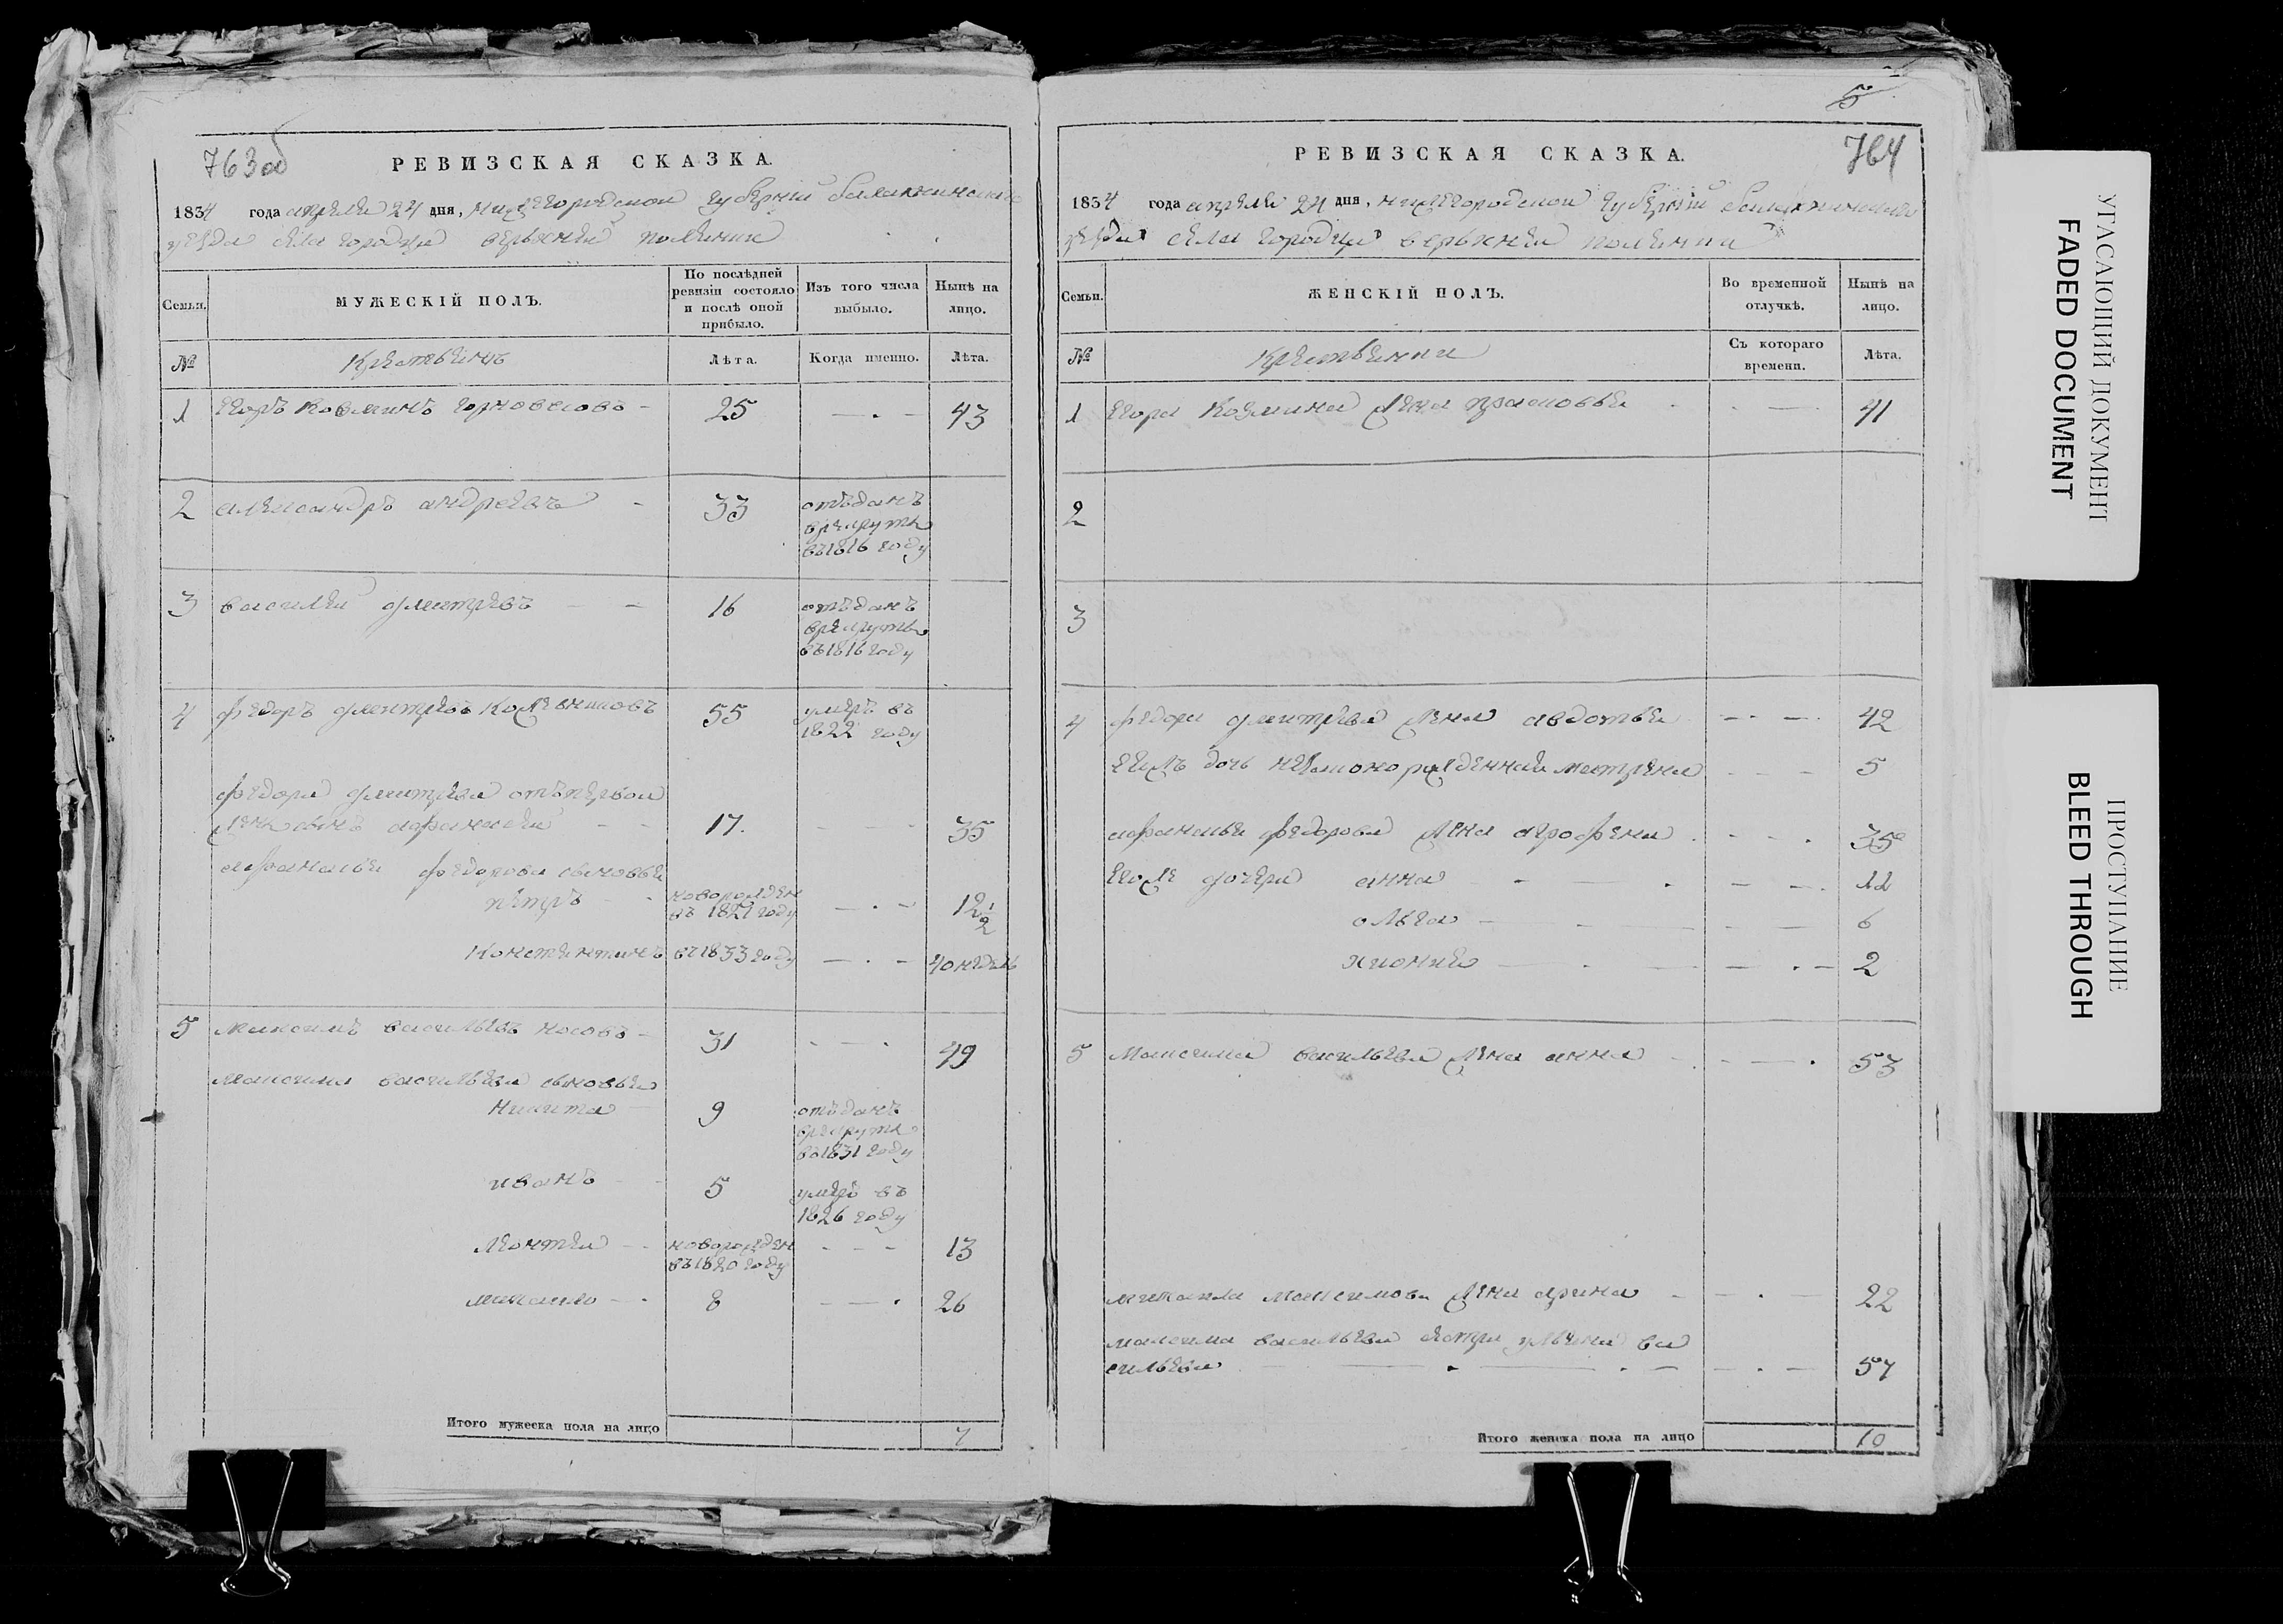 763 об
РЕВИЗСКАЯ СКАЗКА.
1834 года апреля 24 дня, нижегородской губернии балахнинскаго
уезда села городца верхней
Семьи.
МУЖЕСКІЙ ПОЛЪ.
По послѣдней ревизіи состояло и послѣ оной прибыло.
Изъ того числа выбыло.
Нынѣ на лицо.
№
Лѣта.
Когда именно.
Лѣта.
1 Егоръ Козминъ - 25 — . - 43
2 александръ андреевъ - 33
отъданъ
врекруты
въ 1816 году
3 василей дмитревъ - - 16
отъданъ
врекруты
въ 1816 году
4 федоръ дмитревъ Кожевниковъ 55
умеръ въ
1822 году
федора дмитрева отъпервой
жены сынъ афанасей - - 17. - - - 35
афанасья федорова сыновья
петръ - -
новорожден
въ 1821 году — . - 12 1/2
Констентинъ въ 1833 году — . - 40 недель
5 Максимъ васильевъ носовъ - 31 . - . 49
максима васильева сыновья
никита - 9
отъданъ
врекруты
въ 1831 году
иванъ - - 5
умеръ въ
1826 году
леонтей - -
новорожден
въ 1820 году - - - 13
михаило - . 8 - - . 26
Итого мужеска пола на лицо 7
5
764
РЕВИЗСКАЯ СКАЗКА.
1834 года апреля 24 дня, нижегородской губернии балахнинскаго
уезда села городца верхней
Семьи.
ЖЕНСКІЙ ПОЛЪ.
Во временной отлучкѣ.
Нынѣ на лицо.
№
Съ котораго времени.
Лѣта.
1 Егора Козмина жена прасковья - . — 41
2
3
4 федора дмитрева жена авдотья - . - . 42
егожъ дочь матрена - - - 5
афанасья федорова жена агрофена . - - . 35
егоже дочери анна - — . - - . 12
ольга - - - - 6
хиония - . — - . - 2
5 Максима васильева жена анна - - — . 53
михаила максимова жена арина - - . - 22
максима васильева сестра ульяна ва
сильева - — . — . - - . - 57
Итого женска пола на лицо 10
УГАСАЮЩИЙ ДОКУМЕНТ
FADED DOCUMENT
ПРОСТУПАНИЕ
BLEED THROUGH